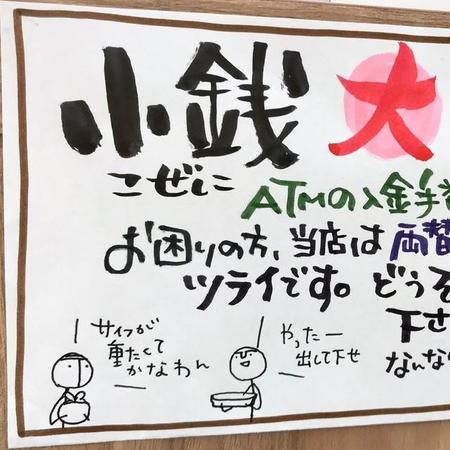 小銭 大
こぜに
ATMの入金手数
お困りの方、当店は両替
ツライです。どうぞ
下さ
なんな
サイフが
重たくて
かなわん
やったー
出して下せ